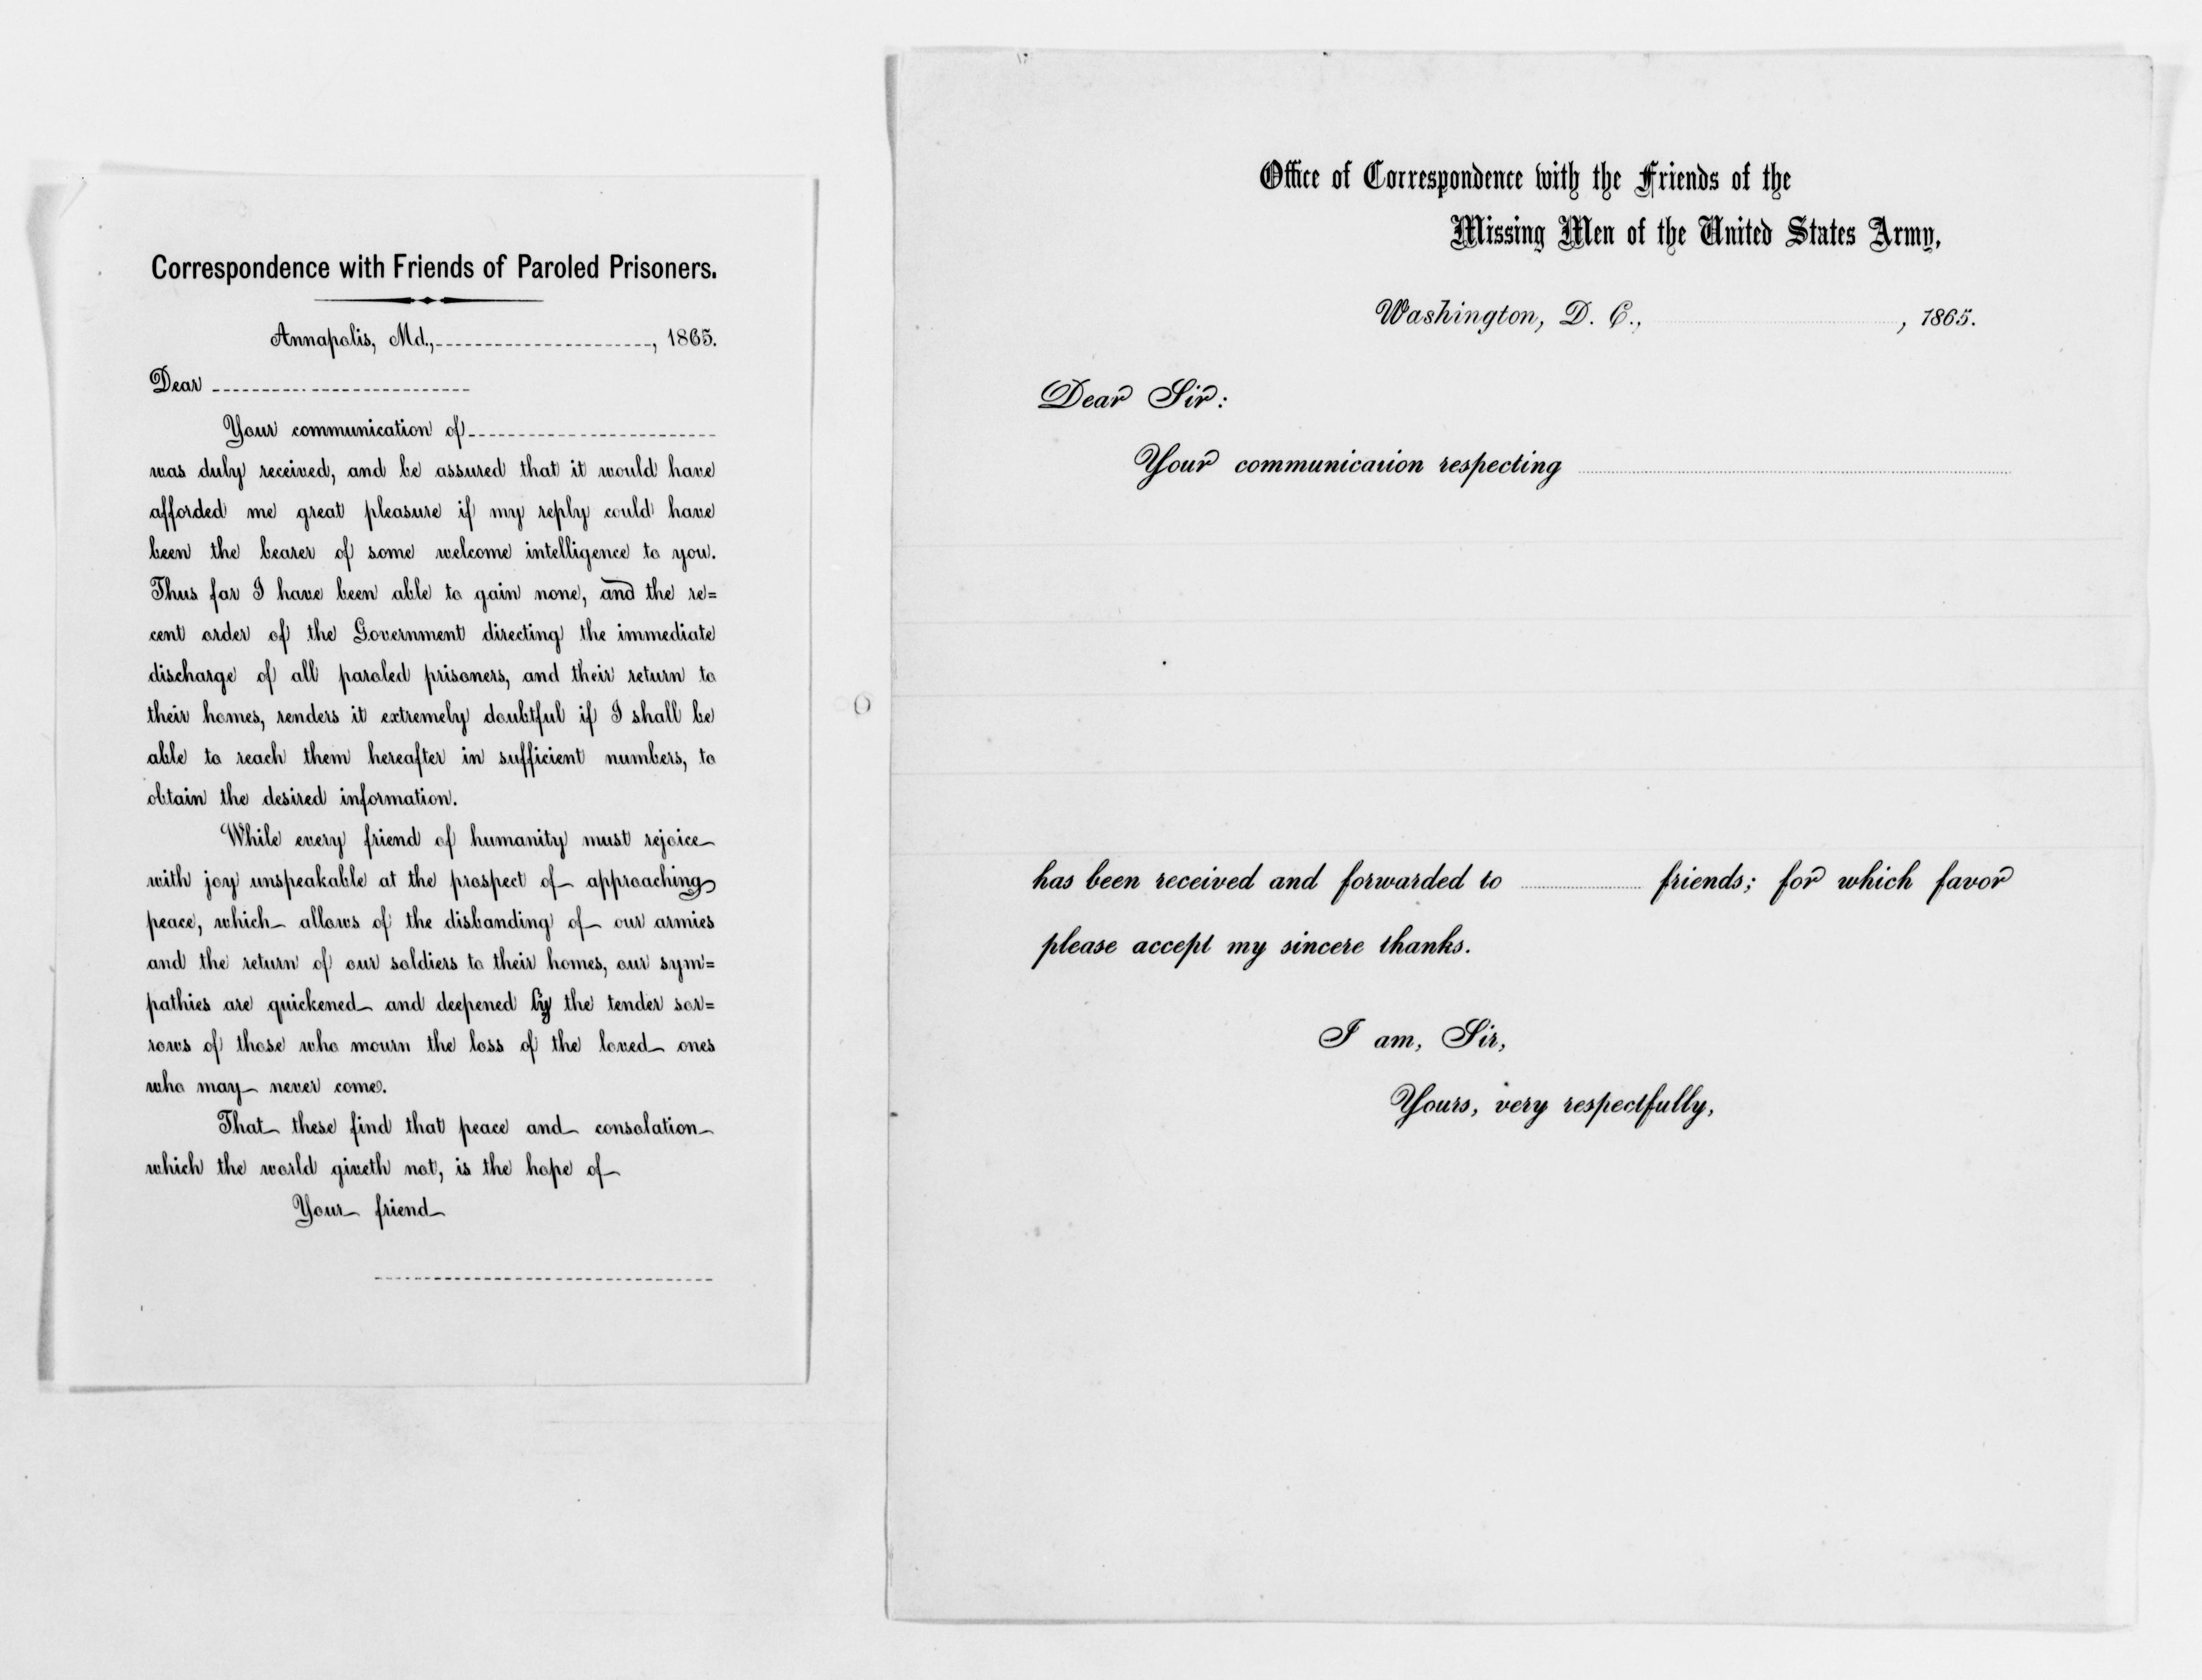 Correspondence with Friends of Paroled Prisoners.
Annapolis, Md., , 1865.
Dear
Your communication of
was duly received, and be assured that it would have
afforded me great pleasure if my reply could have
been the bearer of some welcome intelligence to you.
Thus far I have been able to gain none, and the re=
cent order of the Government directing the immediate
discharge of all paroled prisoners, and their return to
their homes, renders it extremely doubtful if I shall be
able to reach them hereafter in sufficient numbers, to
obtain the desired information.
While every friend of humanity must rejoice
with joy unspeakable at the prospect of approaching
peace, which allows of the disbanding of our armies
and the return of our soldiers to their homes, our sym=
pathies are quickened and deepened by the tender sor=
rows of those who mourn the loss of the loved ones
who may never come.
That these find that peace and consolation
which the world giveth not, is the hope of
Your friend
Office of Correspondence with the Friends of the
Missing Men of the United States Army,
Washington, D. C., , 1865.
Dear Sir:
Your communication respecting
has been received and forwarded to friends; for which favor
please accept my sincere thanks.
I am, Sir,
Yours, very respectfully,